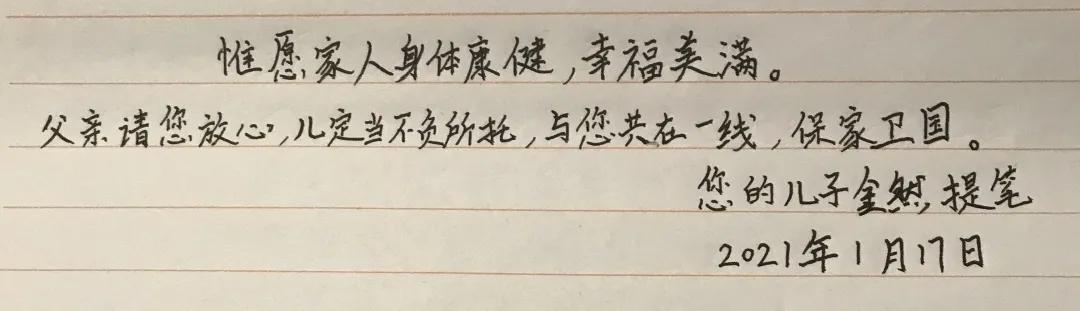 惟愿家人身体康健,幸福美满。
父亲请您放心,儿定当不负所托,与您共在一线,保家卫国。
您的儿子金然提笔
2021年1月17日